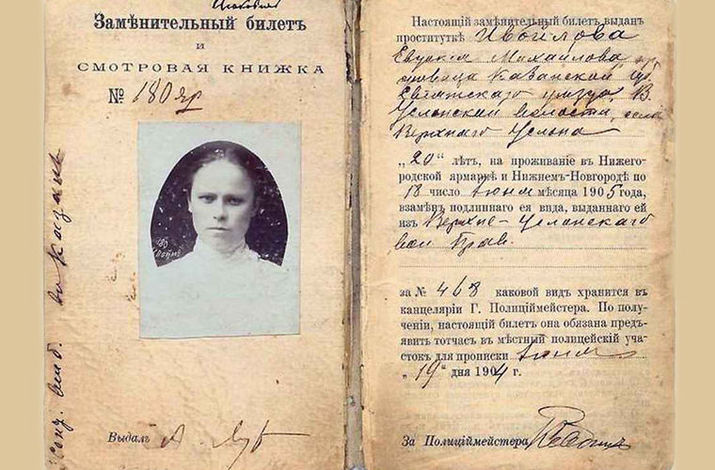 Замѣнительный билетъ
и
СМОТРОВАЯ КНИЖКА
№ 180 яр
Выдалъ
Настоящій замѣнительный билетъ выданъ
проституткѣ Ивойлова
Евдокія Михайлова, кр
Казанской губ
Свіяжскаго уѣзда, В.
Услонской волости, села
Верхняго Услона
„20" лѣтъ, на проживаніе въ Нижего-
родской ярмаркѣ и Нижнемъ-Новгородѣ по
18 число іюня мѣсяца 1905 года,
взамѣнъ подлиннаго ея вида, выданнаго ей
изъ Верхне-Услонскаго
вол Прав.
за № 468 каковой видъ хранится въ
канцеляріи Г. Полиціймейстера. По полу-
ченіи, настоящій билетъ она обязана предъ-
явить тотчасъ въ мѣстный полицейскій учас-
токъ для прописки іюня
„19" дня 1904 г.
За Полиціймейстера